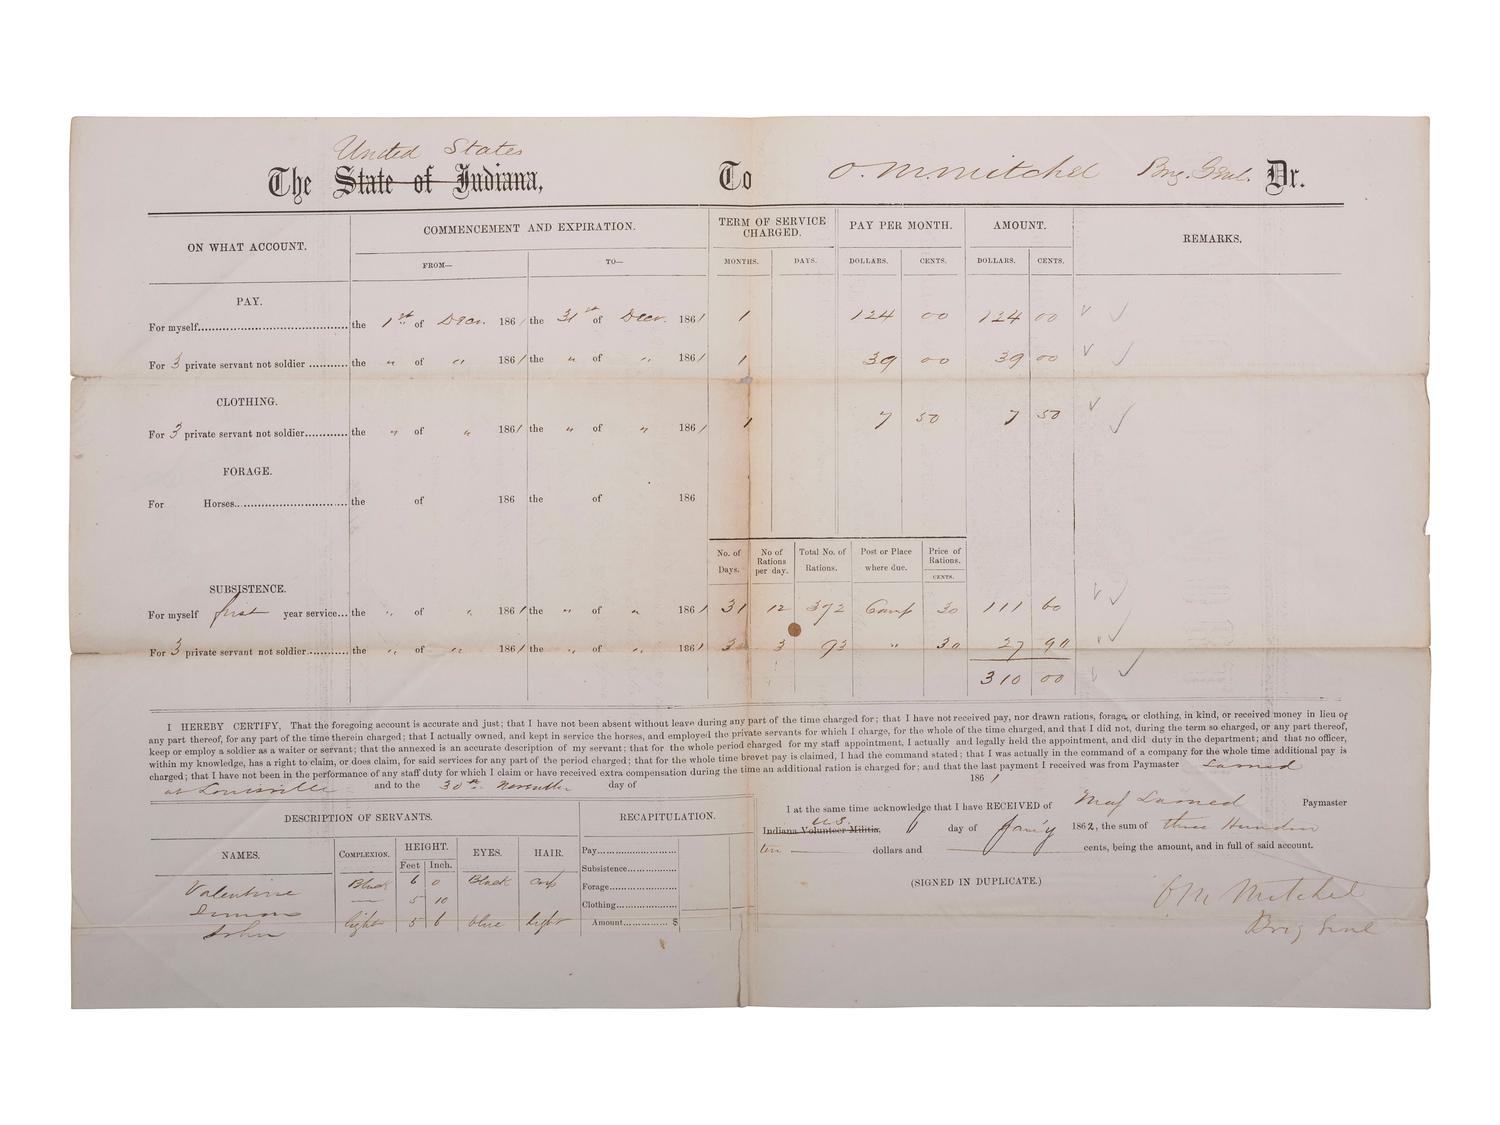 United States
The State of Indiana, To O. M. Mitchel Brig. Genl. Dr.
ON WHAT ACCOUNT. COMMENCEMENT AND EXPIRATION. TERM OF SERVICE CHARGED. PAY PER MONTH. AMOUNT. REMARKS.
FROM— TO— MONTHS. DAYS. DOLLARS. CENTS. DOLLARS. CENTS.
PAY.
For myself the 1st of Decr. 186/ the 31st of Decr. 186/ 1 124 00 124 00
For 3 private servant not soldier the " of " 186/ the " of " 186/ 1 39 00 39 00
CLOTHING.
For 3 private servant not soldier the " of " 186/ the " of " 186/ 1 7 50 7 50
FORAGE.
For Horses the of 186 the of 186
No. of Days. No of Rations per day. Total No. of Rations. Post or Place where due. Price of Rations. CENTS.
SUBSISTENCE.
For myself first year service... the " of " 186/ the " of " 186/ 31 12 372 Camp 30 111 60
For 3 private servant not soldier the " of " 186/ the " of " 186/ 3 93 " 30 27 90
310 00
I HEREBY CERTIFY, That the foregoing account is accurate and just; that I have not been absent without leave during any part of the time charged for; that I have not received pay, nor drawn rations, forage, or clothing, in kind, or received money in lieu of
any part thereof, for any part of the time therein charged; that I actually owned, and kept in service the horses, and employed the private servants for which I charge, for the whole of the time charged, and that I did not, during the term so charged, or any part thereof,
keep or employ a soldier as a waiter or servant; that the annexed is an accurate description of my servant; that for the whole period charged for my staff appointment, I actually and legally held the appointment, and did duty in the department; and that no officer,
within my knowledge, has a right to claim, or does claim, for said services for any part of the period charged; that for the whole time brevet pay is claimed, I had the command stated; that I was actually in the command of a company for the whole time additional pay is
charged; that I have not been in the performance of any staff duty for which I claim or have received extra compensation during the time an additional ration is charged for; and that the last payment I received was from Paymaster Larned
at Louisville and to the 30th November day of 186/
I at the same time acknowledge that I have RECEIVED of Maj Larned Paymaster
U.S.
Indiana Volunteer Militia, 6 day of Jan'y 1862, the sum of three Hundred
ten dollars and cents, being the amount, and in full of said account.
(SIGNED IN DUPLICATE.)
O M Mitchel
Brig Genl
DESCRIPTION OF SERVANTS. RECAPITULATION.
NAMES. COMPLEXION. HEIGHT. Feet Inch. EYES. HAIR.
Valentine Black 6 0 Black
Simons 5 10
John light 5 6 blue light
Pay
Subsistence
Forage
Clothing
Amount $